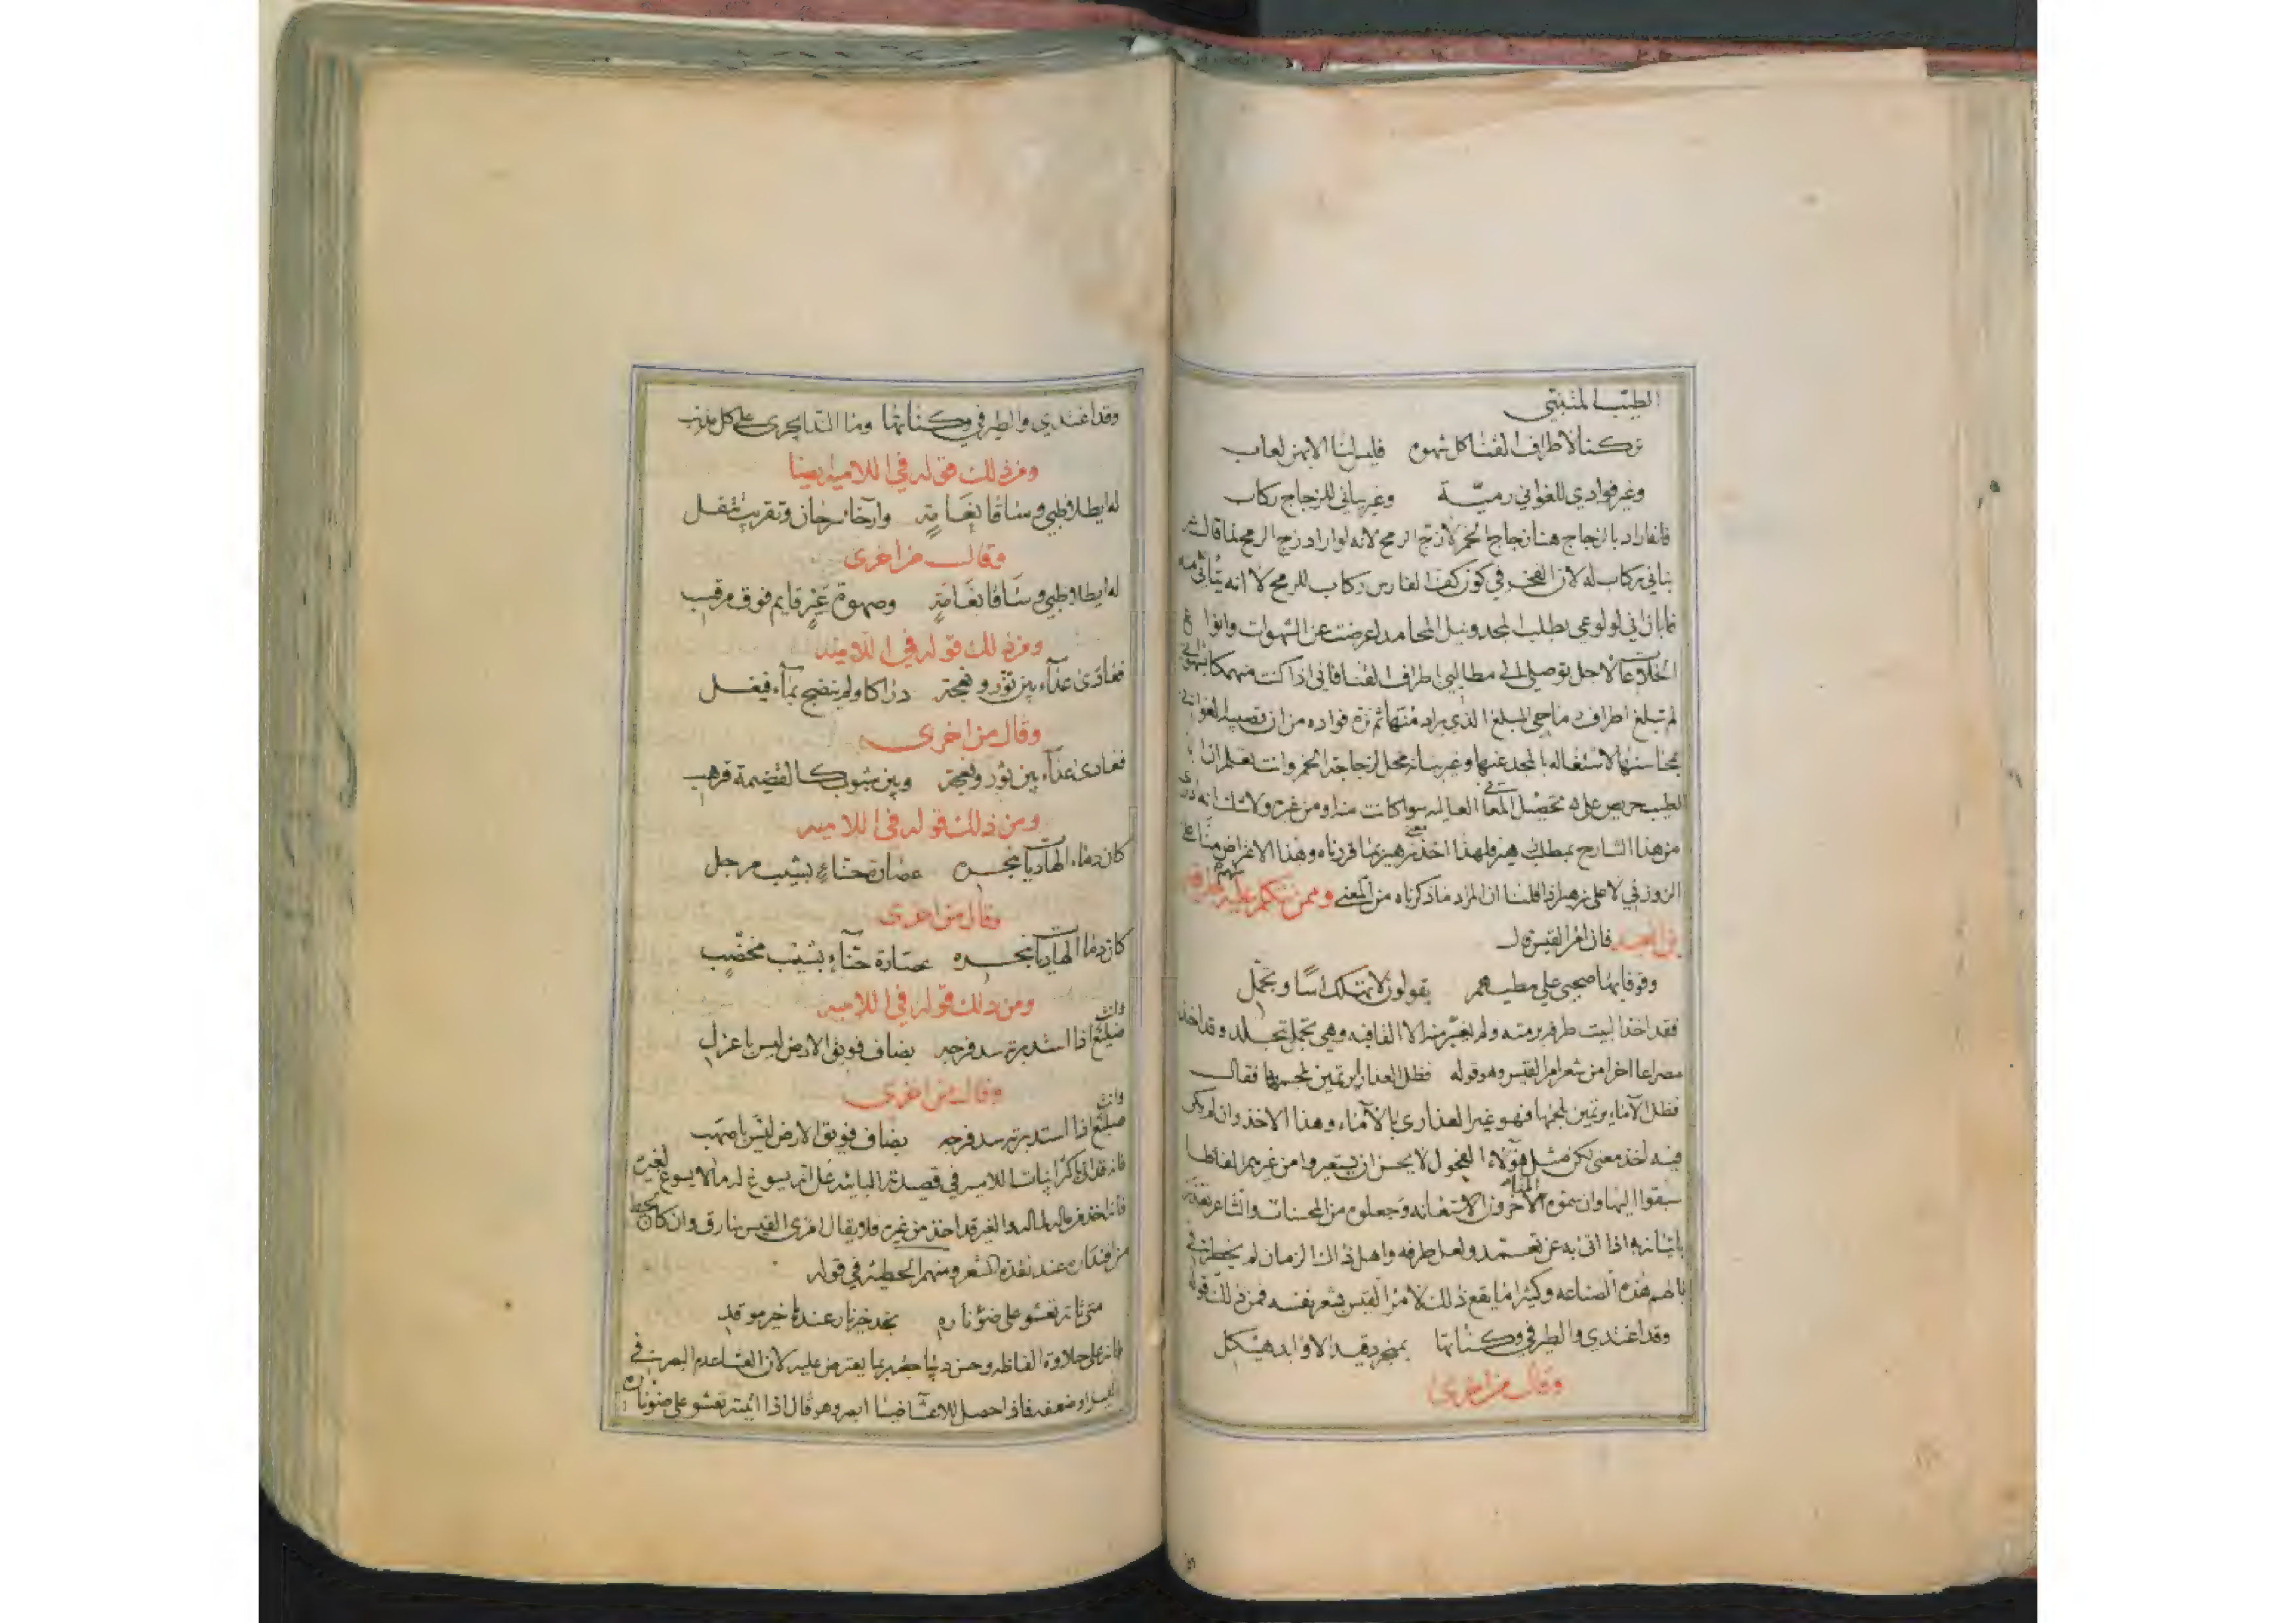 الطيب المتنبي
تركنا لاطراف القنا كل شهوة فليس لنا الا بهن لعاب
وغير فوادي للغواني رمية وغير بناني للزجاج ركاب
فانه اراد بالزجاج هنا زجاج الخمر لا زج الرمح لانه لو اراد زج الرمح لما قال
بناني ركاب له لان الفخر في كون كف الفارس ركاب للرمح لا انه
اني لولوعي بطلب المجد ونيل المحامد اعرضت عن الشهوات وانواع
لاجل توصيلي الى مطالبي اطراف القنا فاني اذا كنت منهمكا
لم تبلغ اطراف رماحي المبلغ الذي يراد منها ثم نزه فواده من ان تصيبه الغواني
بمحاسنها لاشتغاله بالمجد عنها وغير بنانه محل لزجاجة الخمر وانت تعلم ان ابا
الطيب حريص على تحصيل المعاني العاليه سوا كانت منه او من غيره ولا شك انه
من هذا الشارح بمطلب زهير فلهذا اخذ معنى زهير بما قررناه وهذا الاعتراض منا على
الزوزني لا على زهير اذا قلنا ان المراد ما ذكرناه من المعنى وممن يتكلم عليه منهم طرفة
بن العبد فان امرا القيس قال
وقوفا بها صحبي علي مطيهم يقولون لا تهلك اسًا وتجمّل
فقد اخذ البيت طرفه برمته ولم يغير منه الا القافيه وهي تجمل بتجلد وقد اخذ
مصراعا اخرا من شعر امرا القيس وهو قوله فظل العذارا يرتمين بلحمها فقال
فظل الآماء يرتمين بلحمها فهو غير العذارى بالآماء وهذا الاخذ وان لم يكن
فيه اخذ معنى لكن مثل هولاء الفحول لا يحسن ان يستعيروا من غيرهم الفاظا
سبقوا اليها وان سموه المتاخرون الاستعانه وجعلوه من المحسنات والشاعر
باتيانه اذا اتى به عن تعمد ولعل طرفه واهل ذاك الزمان لم يخطر في
بالهم هذه الصناعه وكثيرا ما يقع ذلك لامرا القيس بشعر نفسه فمن ذلك قوله
وقد اغتدي والطير في وكناتها بمنجرد قيد الاوابد هيكل
وقال من اخرى
وقد اغتدي والطير في وكناتها وما الندا يجرى على كل مذنب
ومن ذلك قوله في اللاميه ايضا
له ايطلا ظبي وساقا نعامة وارخاء سرحان وتقريب تتفل
وقال من اخرى
له ايطلا ظبي وساقا نعامة وصهوة عير قايم فوق مرقب
ومن ذلك قوله في اللاميه
فعادى عداء بين ثور ونعجة دراكا ولم ينضح بماء فيغسل
وقال من اخرى
فعادى عداء بين ثور ونعجة وبين شبوب كالقضيمة قرهب
ومن ذلك قوله في اللاميه
كان دماء الهاديات بنحره عصارة حناء بشيب مرجل
وقال من اخرى
كان دما الهاديات بنحره عصارة حناء بشيب مخضب
ومن ذلك قوله في اللاميه
وانت
ضليع اذا استدبرته سد فرجه بضاف فويق الارض ليس باعزل
وقال من اخرى
وانت
ضليع اذا استدبرته سد فرجه بضاف فويق الارض ليس باصهب
ابيات اللاميه في قصيدته البائيه على انه يسوغ له ما لا يسوغ لغيره
فانه اخذ من ماله لماله والغير قد اخذ من غيره فلا يقال امرى القيس سارق وان كان
من اقتداره عند نقدة الشعر ومنهم الحطيئه في قوله
متى تاته تعشو على ضوئ ناره تجد خير نار عندها خير موقد
فانه على حلاوة الفاظه وحسن ديباجته ربما يعترض عليه لان العشا عدم البصر في
الليل او ضعفه فاذا حصل للاعشا ضيا ابصر وهو قال اذا اتيته تعشو على ضوئ ناره